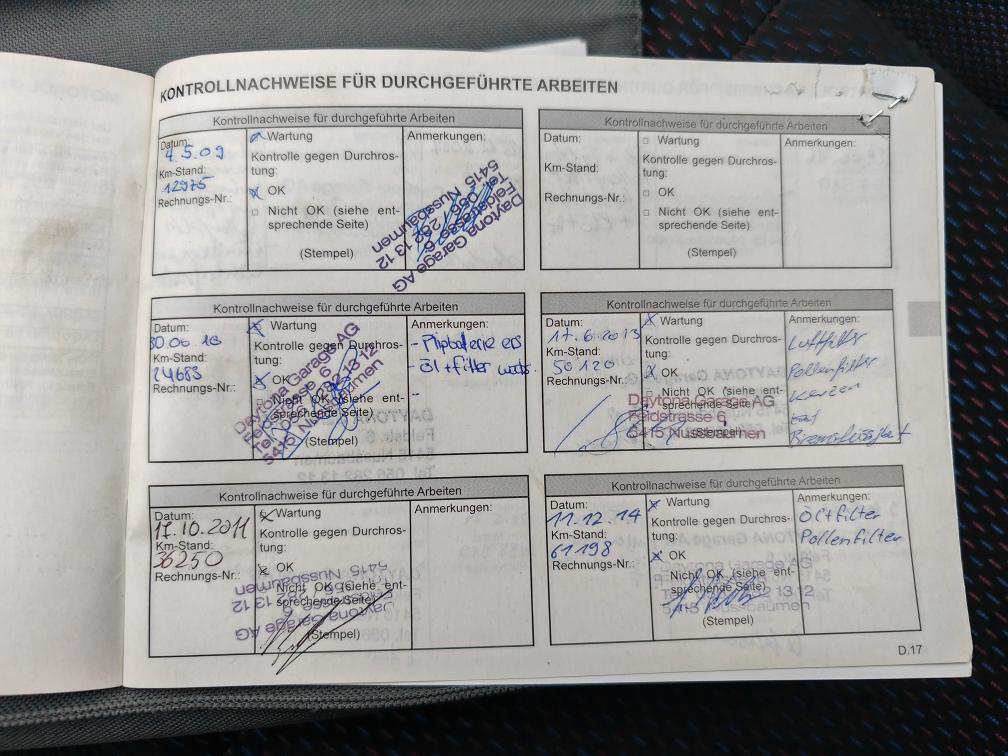 KONTROLLNACHWEISE FÜR DURCHGEFÜHRTE ARBEITEN
Kontrollnachweise für durchgeführte Arbeiten
Datum:
4.5.09
Km-Stand:
12975
Rechnungs-Nr.:
Wartung
Kontrolle gegen Durchros-
tung:
OK
Nicht OK (siehe ent-
sprechende Seite)
(Stempel)
Anmerkungen:
Daytona Garage AG
Feldstrasse 6
Tel. 056 / 282 13 12
5415 Nussbaumen
Kontrollnachweise für durchgeführte Arbeiten
Datum:
Km-Stand:
Rechnungs-Nr.:
Wartung
Kontrolle gegen Durchros-
tung:
OK
Nicht OK (siehe ent-
sprechende Seite)
(Stempel)
Anmerkungen:
Kontrollnachweise für durchgeführte Arbeiten
Datum:
30.06 10
Km-Stand:
24683
Rechnungs-Nr.:
Wartung
Kontrolle gegen Durchros-
tung:
OK
Nicht OK (siehe ent-
sprechende Seite)
(Stempel)
Daytona Garage AG
Feldstrasse 6
Tel. 056 / 282 13 12
5415 Nussbaumen
Anmerkungen:
- Öl + filter
Kontrollnachweise für durchgeführte Arbeiten
Datum:
17.6.2013
Km-Stand:
50120
Rechnungs-Nr.:
Wartung
Kontrolle gegen Durchros-
tung:
OK
Nicht OK (siehe ent-
sprechende Seite)
(Stempel)
Daytona Garage AG
Feldstrasse 6
5415 Nussbaumen
Anmerkungen:
Luftfilter
Pollenfilter
Kerzen
Bremsflüssigkeit
Kontrollnachweise für durchgeführte Arbeiten
Datum:
17.10.2011
Km-Stand:
36250
Rechnungs-Nr.:
Wartung
Kontrolle gegen Durchros-
tung:
OK
Nicht OK (siehe ent-
sprechende Seite)
(Stempel)
Daytona Garage AG
Feldstrasse 6
5415 Nussbaumen
Anmerkungen:
Kontrollnachweise für durchgeführte Arbeiten
Datum:
11.12.14
Km-Stand:
61198
Rechnungs-Nr.:
Wartung
Kontrolle gegen Durchros-
tung:
OK
Nicht OK (siehe ent-
sprechende Seite)
(Stempel)
5415 Nussbaumen
Anmerkungen:
Öl+filter
Pollenfilter
D.17